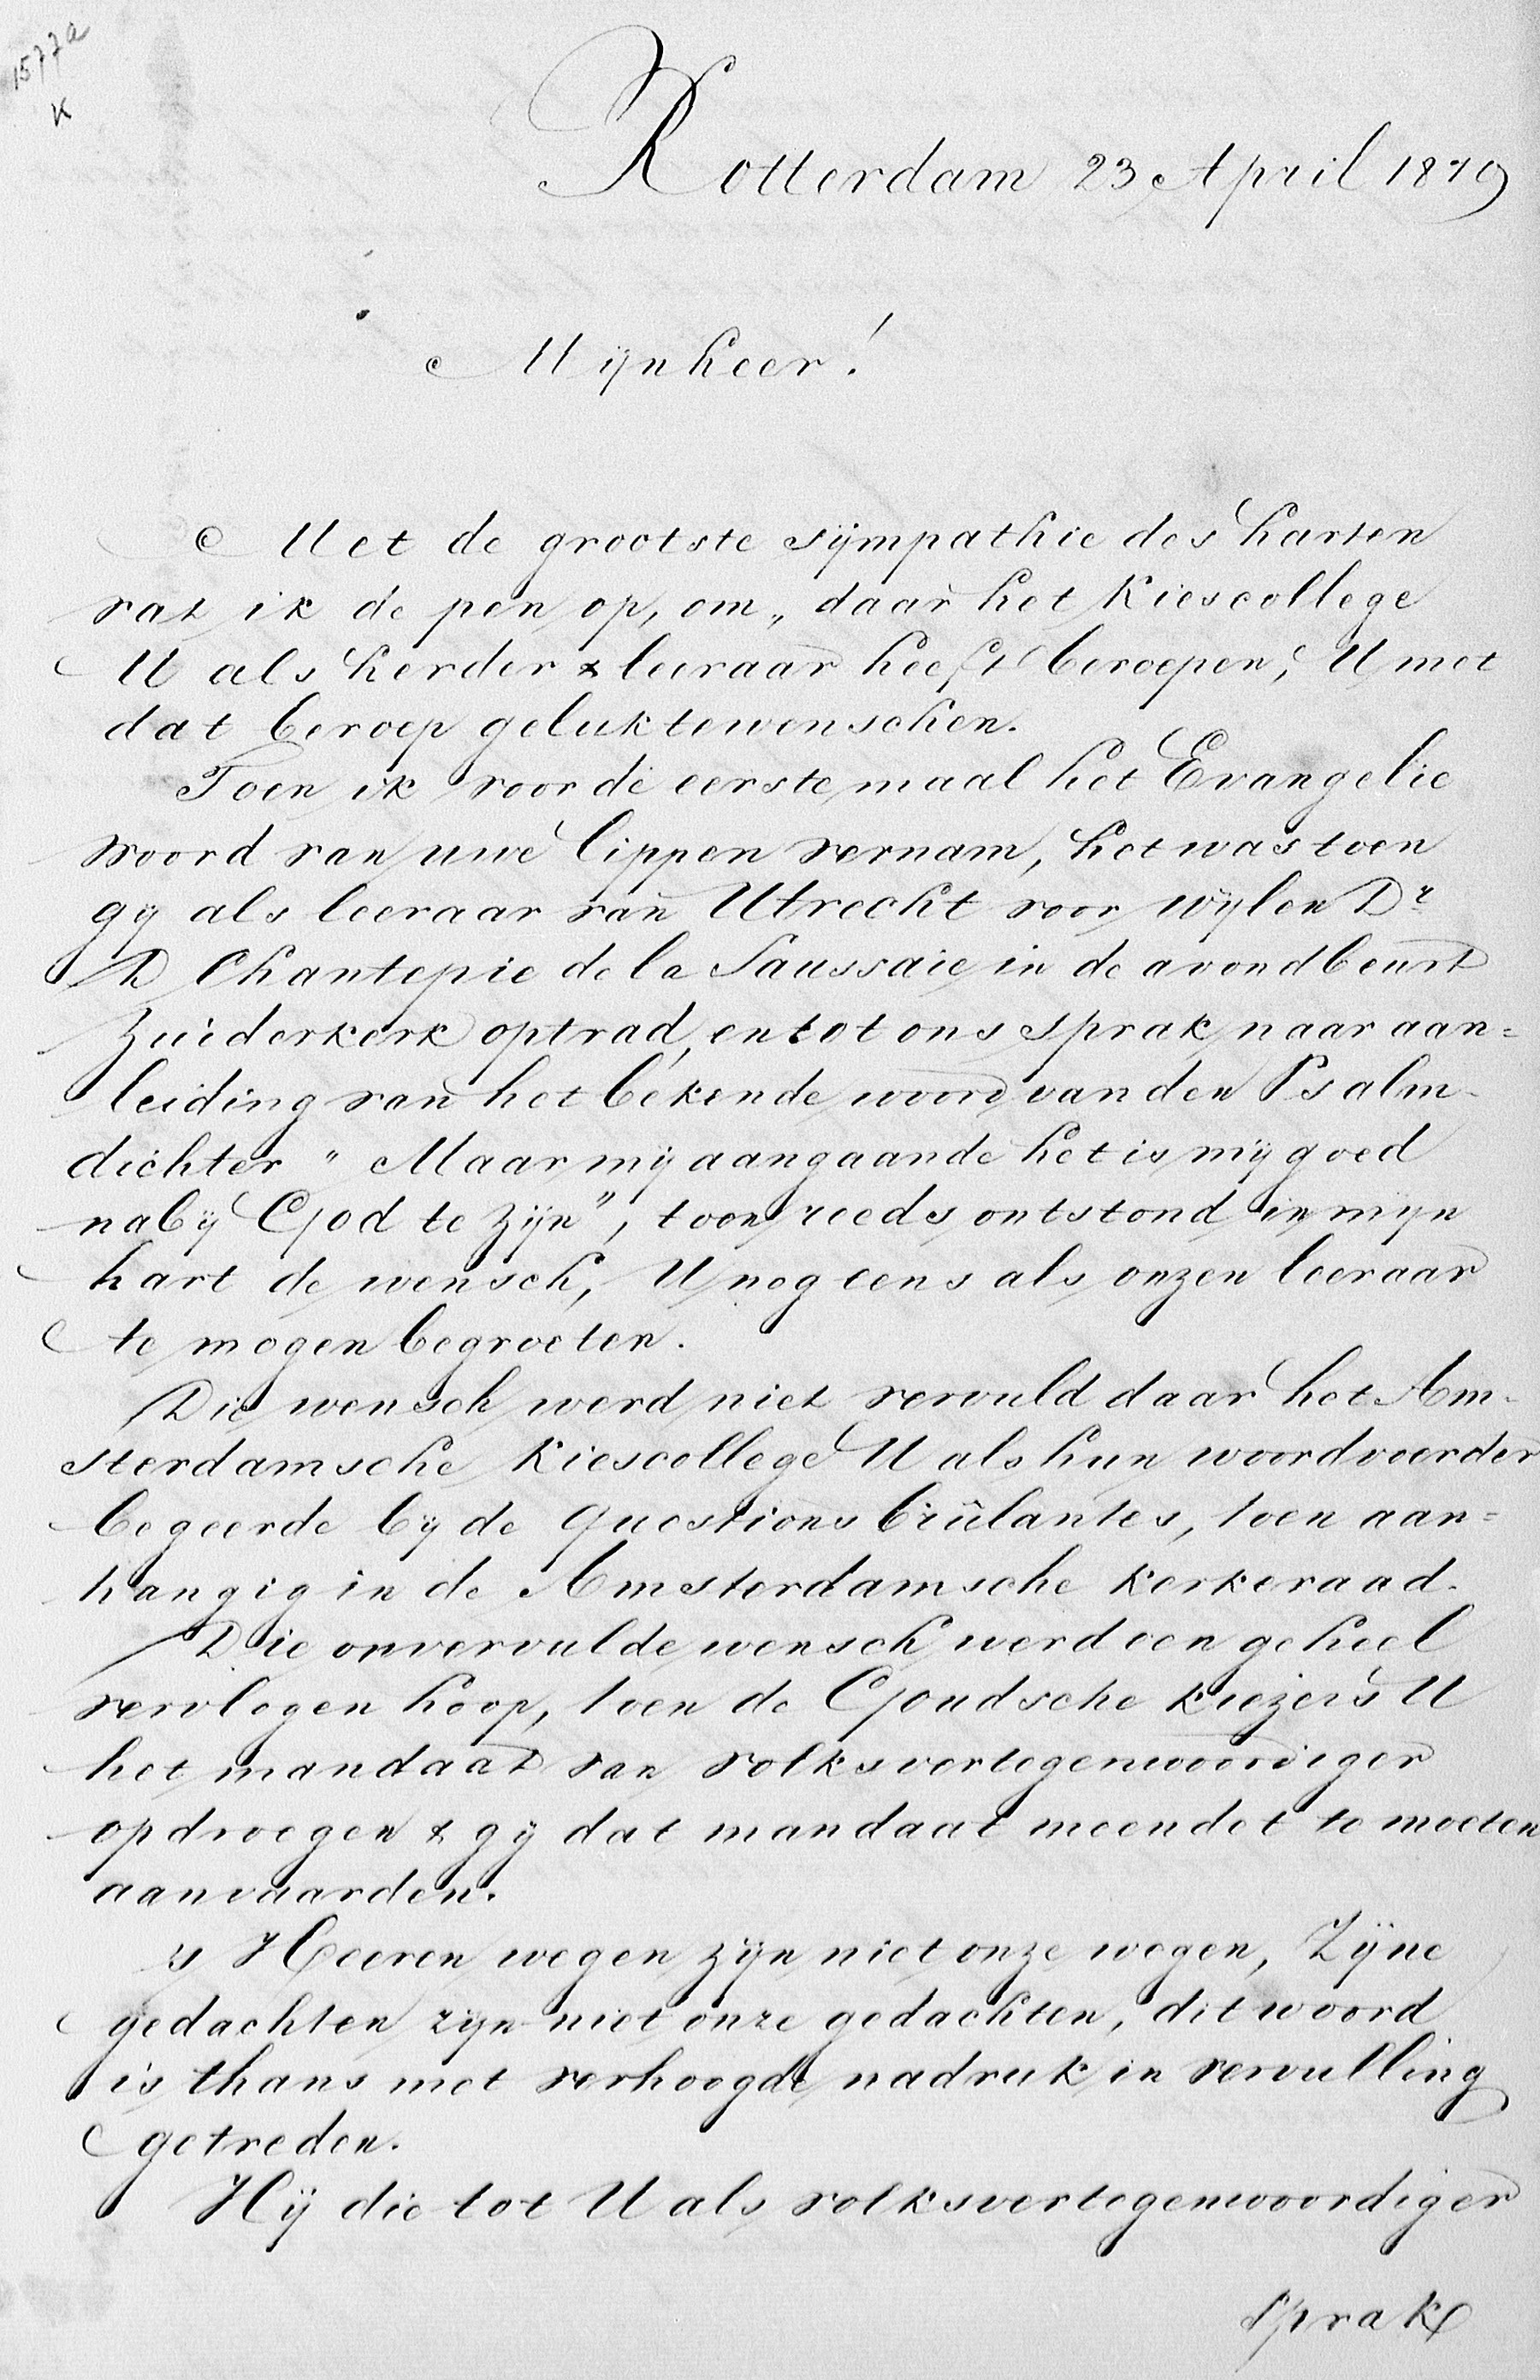 1577a
K
Rotterdam 23 April 1879
Mijnheer!
Met de grootste sijmpathie des harten
vat ik de pen op, om, daar het Kiescollege
U als herder & leeraar heeft beroepen, U met
dat beroep geluktewenschen.
Toen ik voor de eerste maal het Evangelie
woord van uwe lippen vernam, het was toen
gij als leeraar van Utrecht voor wijlen Dr
D Chantepie de la Saussaie in de avondbeurt
Zuiderkerk optrad, en tot ons sprak naar aan=
leiding van het bekende woord van den Psalm-
dichter " Maar mij aangaande het is mij goed
nabij God te zijn", toen reeds ontstond in mijn
hart de wensch, U nog eens als onzen leeraar
te mogen begroeten.
Die wensch werd niet vervuld daar het Am-
sterdamsche Kiescollege U als hun woordvoerder
begeerde bij de questions brûlantes, toen aan=
hangig in de Amsterdamsche kerkeraad.
Die onvervulde wensch werd een geheel
vervlogen hoop, toen de Goudsche kiezers U
het mandaat van volksvertegenwoordiger
opdroegen & gij dat mandaat meendet te moeten
aanvaarden.
's Heeren wegen zijn niet onze wegen, Zijne
gedachten zijn niet onze gedachten, dit woord
is thans met verhoogde nadruk in vervulling
getreden.
Hij die tot U als volksvertegenwoordiger
sprak